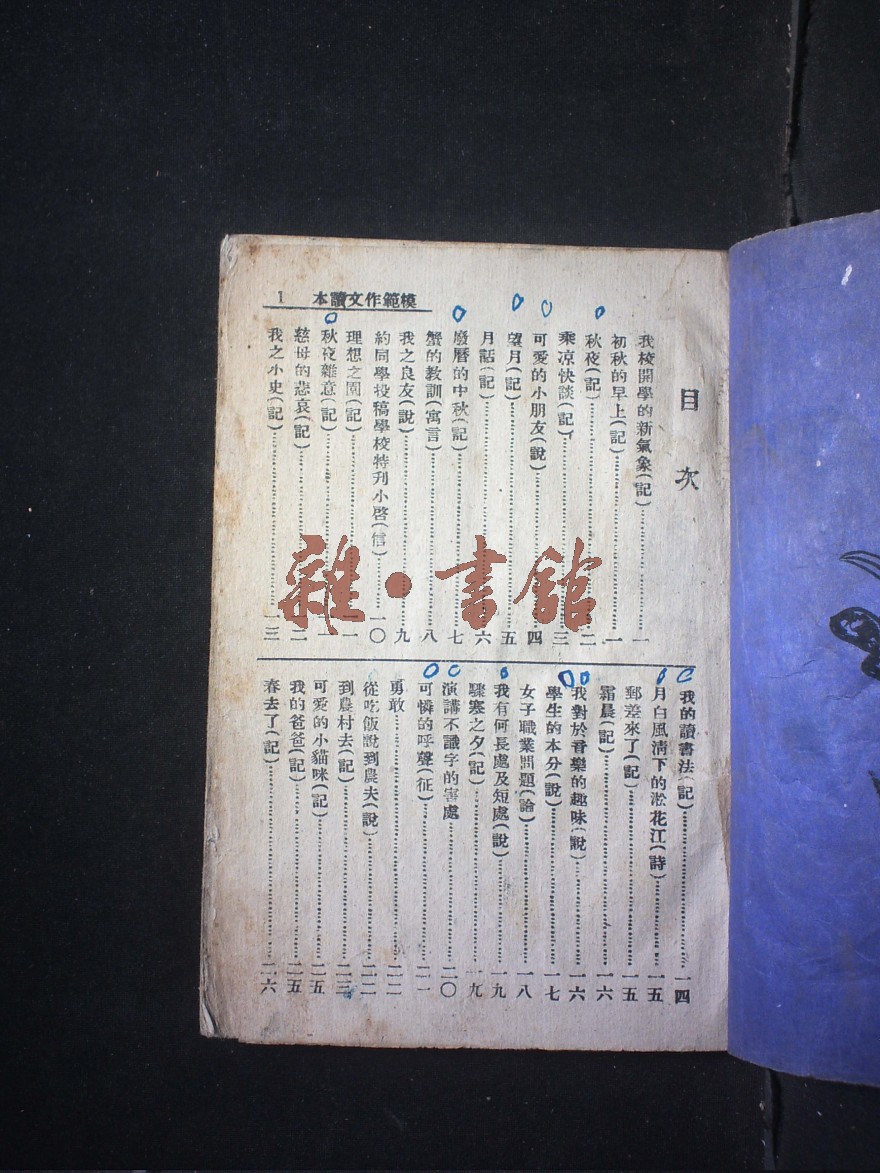 模範作文讀本 1
目次
我校開學的新氣象(記)……一
初秋的早上(記)……一
秋夜(記)……二
乘凉快談(記)……三
可愛的小朋友(說)……四
望月(記)……五
月話(記)……六
廢曆的中秋(記)……七
蟹的教訓(寓言)……八
我之良友(說)……九
約同學投稿學校特刋小啓(信)……一〇
理想之園(記)……一一
秋夜雜意(記)……一一
慈母的悲哀(記)……一二
我之小史(記)……一三
我的讀書法(記)……一四
月白風淸下的淞花江(詩)……一五
郵差來了(記)……一五
霜晨(記)……一六
我對於音樂的趣味(說)……一六
學生的本分(說)……一七
女子職業問題(論)……一八
我有何長處及短處(說)……一九
驟寒之夕(記)……一九
演講不識字的害處……二〇
可憐的呼聲(征)……二一
勇敢……二二
從吃飯說到農夫(說)……二二
到農村去(記)……二三
可愛的小貓咪(記)……二五
我的爸爸(記)……二五
春去了(記)……二六
雜·書館